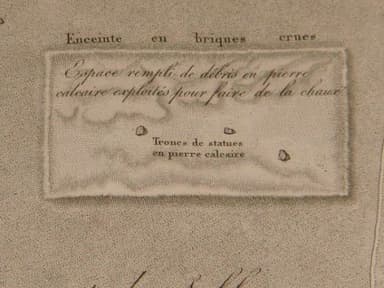 Enceinte en briques crues
Espace rempli de débris en pierre
calcaire exploités pour faire de la chaux
Troncs de statues
en pierre calcaire